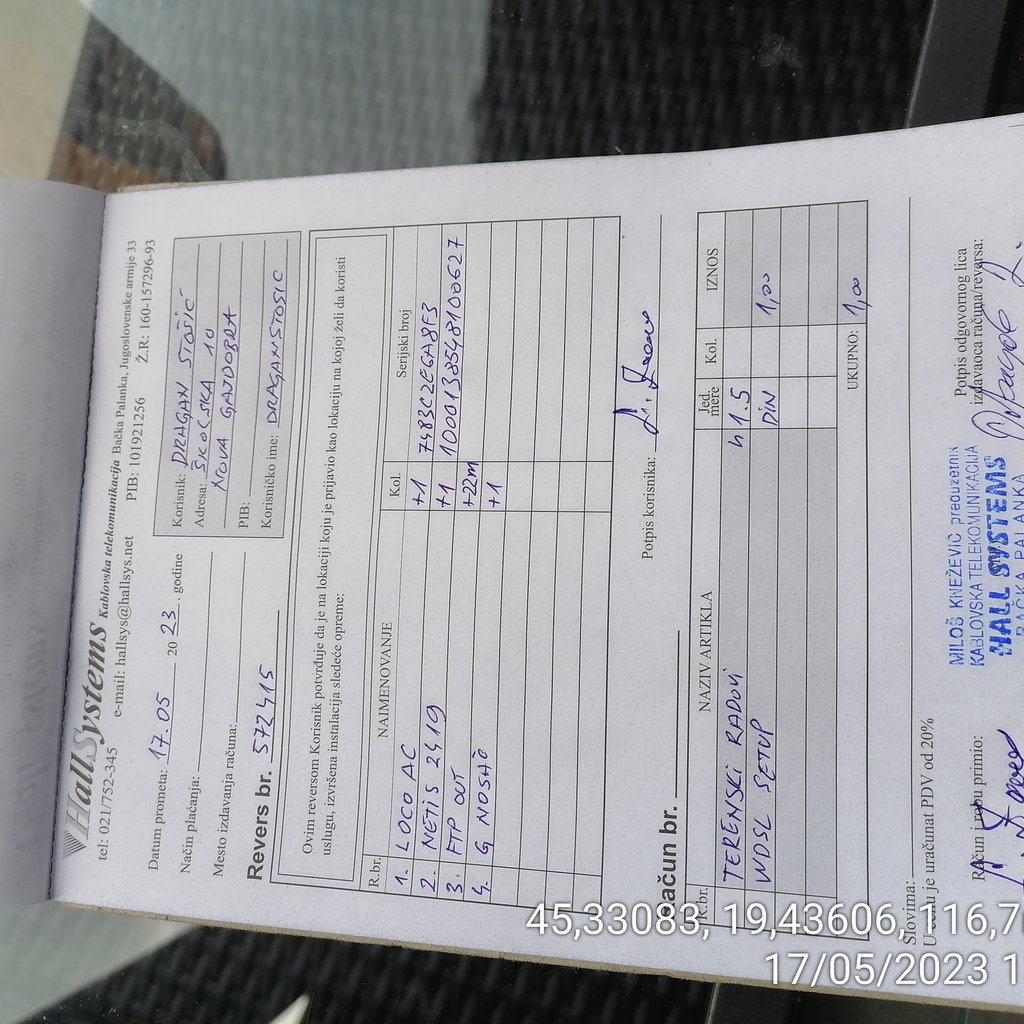 HallSystems Kablovska telekomunikacija Bačka Palanka, Jugoslovenske armije 33
tel: 021/752-345 e-mail: hallsys@hallsys.net PIB: 101921256 Ž.R: 160-157296-93
Datum prometa: 17.05 2023. godine
Način plaćanja:
Mesto izdavanja računa:
Revers br. 572415
Korisnik: DRAGAN STOŠIĆ
Adresa: ŠKOLSKA 10
NOVA GAJDOBRA
PIB:
Korisničko ime: DRAGANSTOSIC
Ovim reversom Korisnik potvrđuje da je na lokaciji koju je prijavio kao lokaciju na kojoj želi da koristi
uslugu, izvršena instalacija sledeće opreme:
R.br. NAIMENOVANJE Kol. Serijski broj
1. LOCO AC +1 7483C2EGA8F3
2. NETIS 2419 +1 1000138548100627
3. FTP OUT +22m
4. G NOSAČ +1
Potpis korisnika:
Račun br.
R.br. NAZIV ARTIKLA Jed. mere Kol. IZNOS
TERENSKI RADOVI h 1.5
WDSL SETUP DIN 1,00
UKUPNO: 1,00
Slovima:
U cenu je uračunat PDV od 20%
Račun i robu primio:
Potpis odgovornog lica
izdavaoca računa/reversa:
MILOŠ KNEŽEVIĆ preduzetnik
KABLOVSKA TELEKOMUNIKACIJA
HALL SYSTEMS
BAČKA PALANKA
45,33083, 19,43606, 116,7
17/05/2023 1